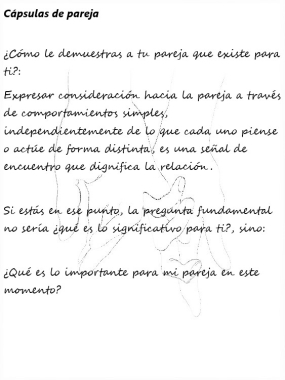 Cápsulas de pareja
¿Cómo le demuestras a tu pareja que existe para
ti?:
Expresar consideración hacia la pareja a través
de comportamientos simples,
independientemente de lo que cada uno piense
o actúe de forma distinta, es una señal de
encuentro que dignifica la relación.
Si estás en ese punto, la pregunta fundamental
no sería ¿qué es lo significativo para ti?, sino:
¿Qué es lo importante para mi pareja en este
momento?